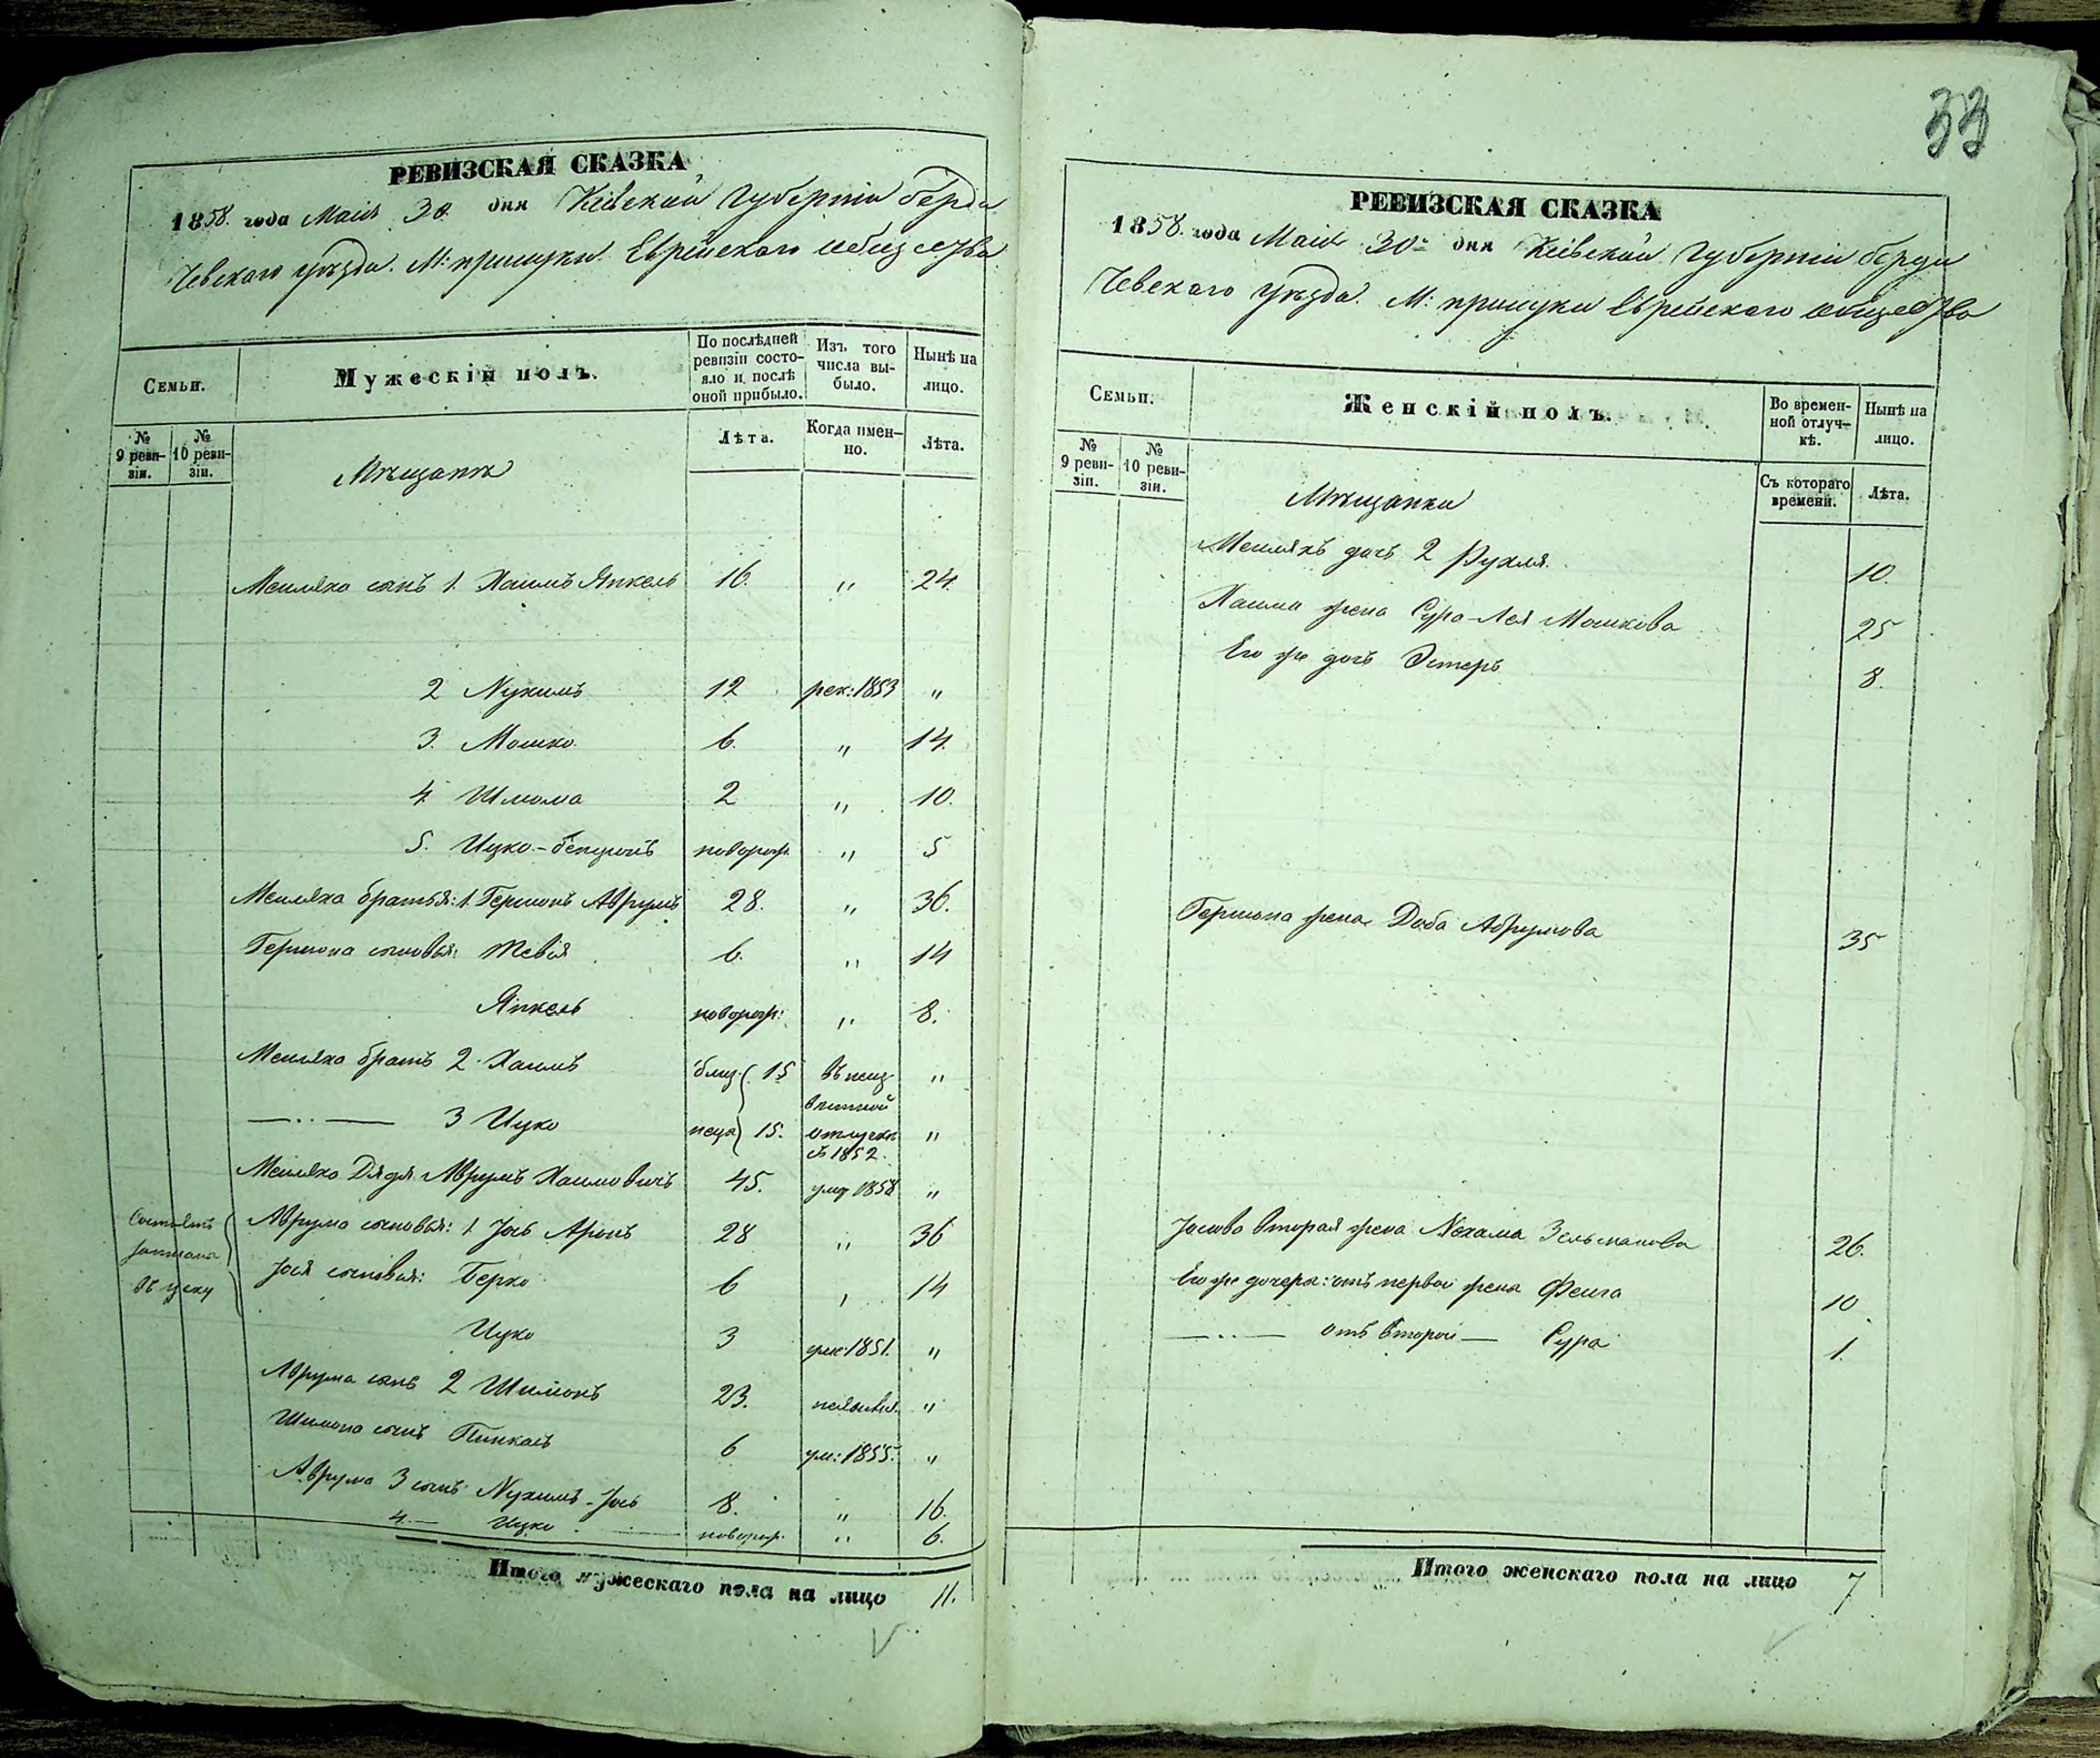 33
РЕВИЗСКАЯ СКАЗКА
1858. года Маія 30. дня Кіевской Губерніи Берди
чевскаго уѣзда. М: Прилуки Еврейскаго общества
Семьи.
Мужескій полъ.
По послѣдней ревизіи состояло и послѣ оной прибыло.
Изъ того числа выбыло.
Нынѣ на лицо.
№ 9 ревизіи.
№ 10 ревизіи.
Мѣщане
Лѣта.
Когда именно.
Лѣта.
Меиляха сынъ 1. Хаимъ Янкель 16. " 24.
2 Нухимъ 12 рек: 1853 "
3. Мошко 6. " 14.
4 Шлиома 2 " 10.
5. Ицко-Бенционъ новорож. " 5
Меиляха братья: 1. Гершонъ Аврумъ 28. " 36.
Гершона сыновья: Тевія 6. " 14
Янкель новорож: " 8.
Меиляха братъ 2. Хаимъ близ 15 въ неиз- "
вѣстной
—..— 3 Ицко неца 15. отлучкѣ "
съ 1852.
Меиляха Дядя Аврумъ Хаимовичъ 45. умер 1858 "
Состоятъ
Аврума сыновья: 1 Іось Аронъ 28 " 36
въ цеху
Іося сыновья: Берко 6 " 14
Ицко 3 уме: 1851. "
Аврума сынъ 2 Шимонъ 23. "
Шимона сынъ Пинкасъ 6 ум: 1855. "
Аврума 3 сынъ Нухимъ-Іось 8. " 16.
4.— Ицко новорож. " 6.
Итого мужескаго пола на лицо 11.
РЕВИЗСКАЯ СКАЗКА
1858. года Маія 30. дня Кіевской Губерніи Берди
чевскаго уѣзда. М: Прилуки Еврейскаго общества
Семьи.
Женскій полъ.
Во временной отлучкѣ.
Нынѣ на лицо.
№ 9 ревизіи.
№ 10 ревизіи.
Мѣщанки
Съ котораго времени.
Лѣта.
Меиляхъ дочь 2 Рухля. 10.
Хаима жена Сура-Лея Мошкова 25
Его же дочь Эстеръ 8.
Гершона жена Доба Абрумова 35
Іосиова вторая жена Нехама Зельманова 26.
Его же дочери: отъ первой жены Фейга 10
—..— отъ второй — Сура 1.
Итого женскаго пола на лицо 7